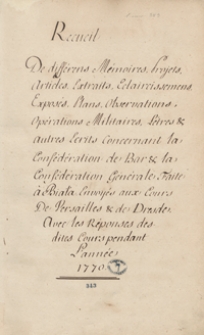 Recueil
De differens Mémoires, Projets,
Articles, Extraits, Eclaircissemens,
Exposés, Plans, Observations,
Opérations Militaires, Lettres &
autres Ecrits Concernant la
Confédération de Bar & la
Confédération Générale Faite
à Biala, Envoyés aux Cours
De Versailles & de Dresde,
Avec les Réponses des
dites Cours pendant
l'année
1770